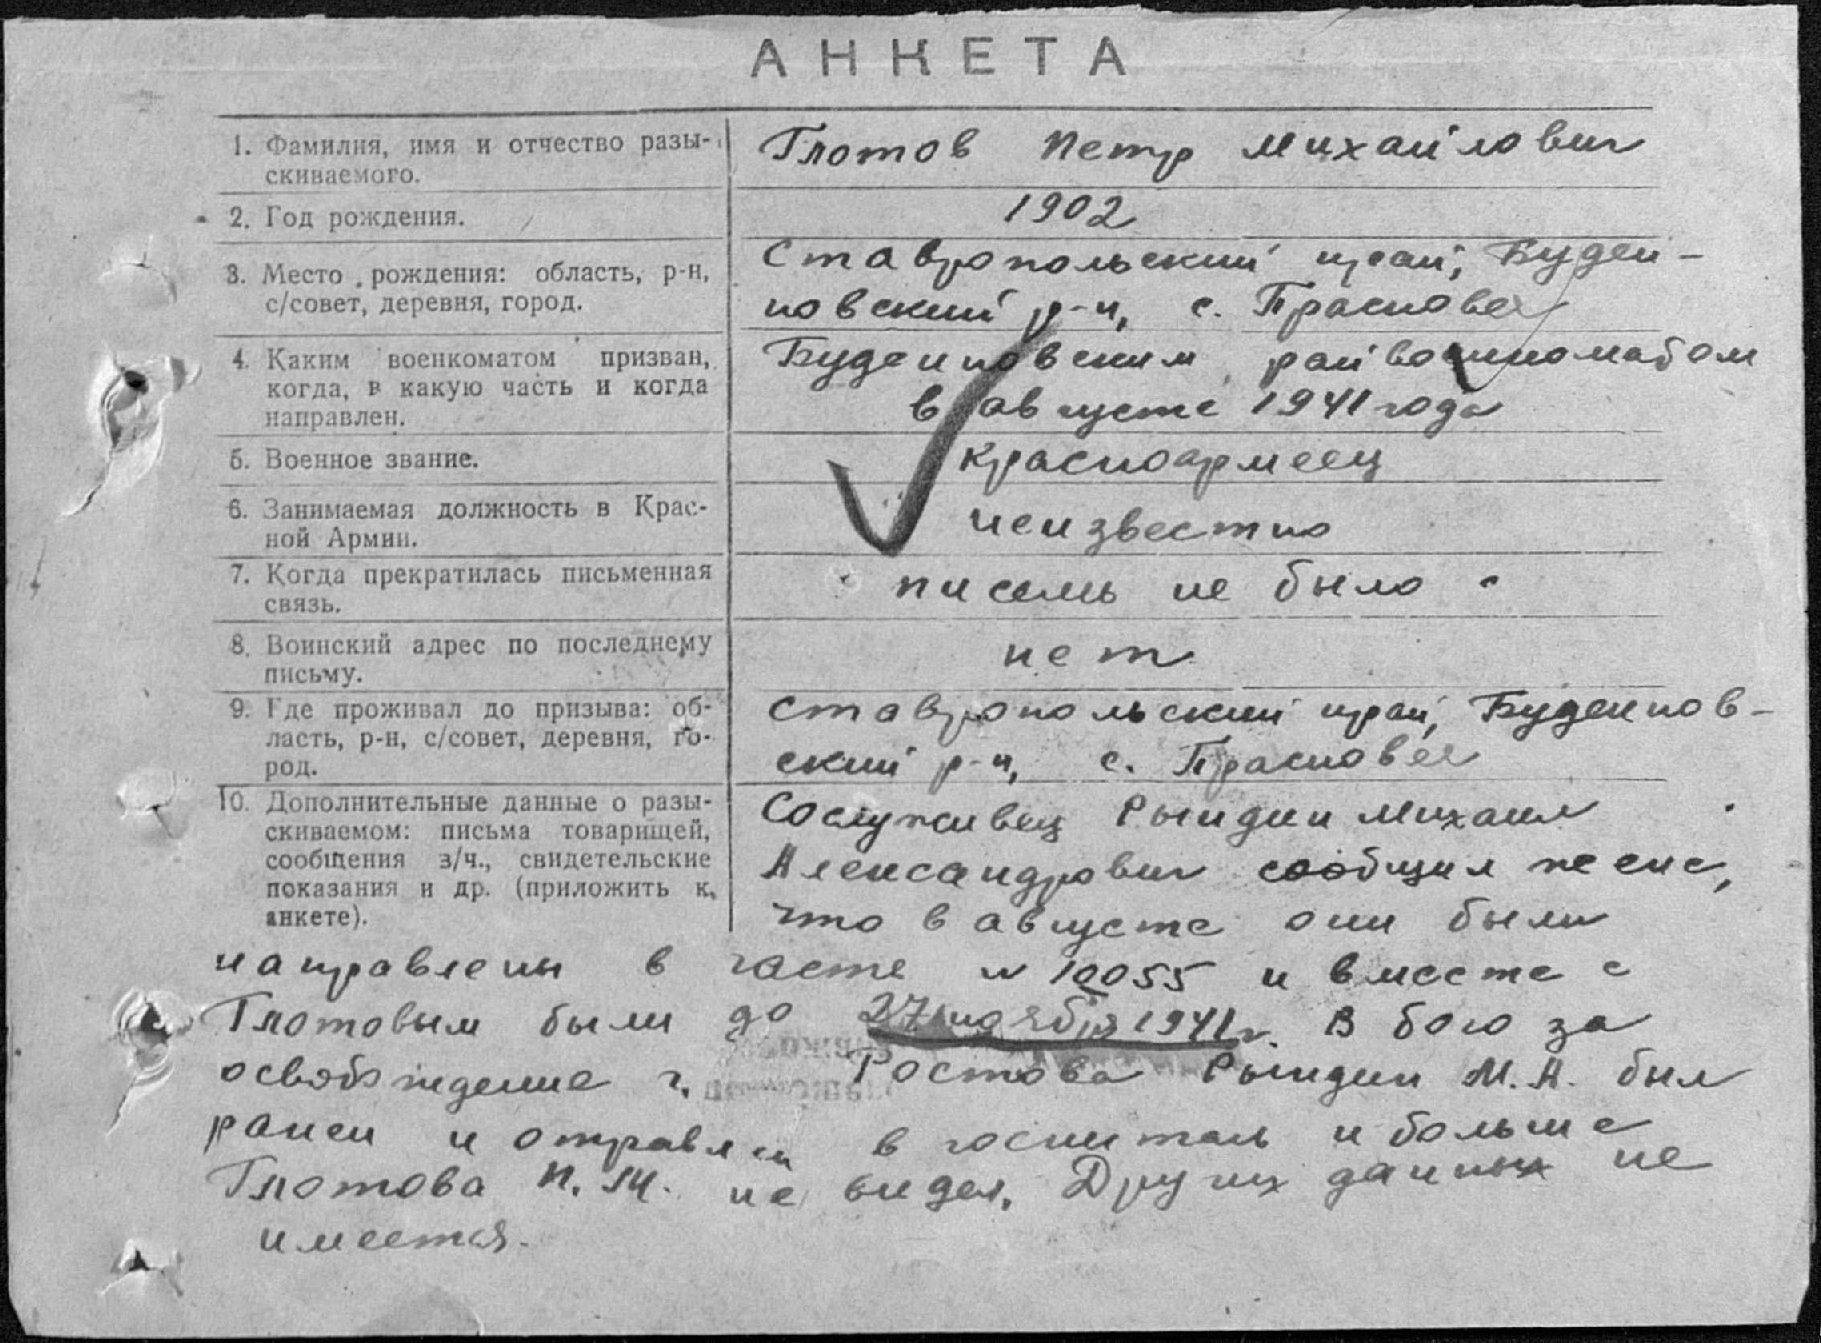 АНКЕТА
1. Фамилия, имя и отчество разы-
скиваемого.
Глотов Петр Михайлович
2. Год рождения.
1902
3. Место рождения: область, р-н,
с/совет, деревня, город.
Ставропольский край, Буден-
новский р-н, с. Прасковея
4. Каким военкоматом призван,
когда, в какую часть и когда
направлен.
Буденновским райвоенкоматом
в августе 1941 года
5. Военное звание.
красноармеец
6. Занимаемая должность в Крас-
ной Армии.
неизвестно
7. Когда прекратилась письменная
связь.
писем не было
8. Воинский адрес по последнему
письму.
нет
9. Где проживал до призыва: об-
ласть, р-н, с/совет, деревня, го-
род.
Ставропольский край, Буденнов-
ский р-н, с. Прасковея
10. Дополнительные данные о разы-
скиваемом: письма товарищей,
сообщения в/ч., свидетельские
показания и др. (приложить к
анкете).
Сослуживец Рындин Михаил
Александрович сообщил жене,
что в августе они были
направлены в часть № 10055 и вместе с
Глотовым были до 27 ноября 1941 г. В бою за
освобождение г. Ростова Рындин М.А. был
ранен и отправлен в госпиталь и больше
Глотова П.М. не видел. Других данных не
имеется.